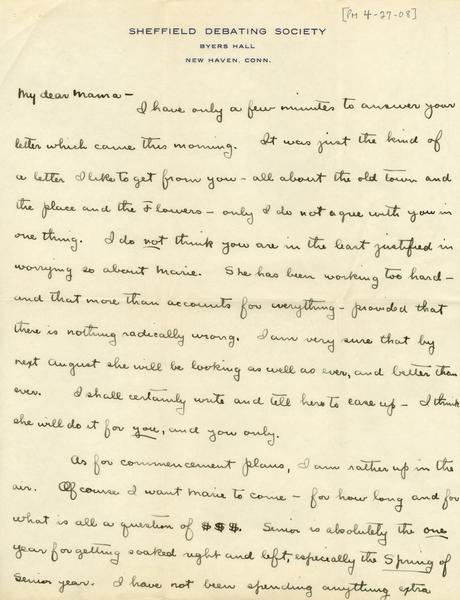 [PM 4-27-08]
SHEFFIELD DEBATING SOCIETY
BYERS HALL
NEW HAVEN, CONN.
My dear Mama –
I have only a few minutes to answer your
letter which came this morning. It was just the kind of
a letter I like to get from you – all about the old town and
the place and the Flowers – only I do not agree with you in
one thing. I do not think you are in the least justified in
worrying so about Marie. She has been working too hard –
and that more than accounts for everything – provided that
there is nothing radically wrong. I am very sure that by
next August she will be looking as well as ever, and better than
ever. I shall certainly write and tell here to ease up – I think
she will do it for you, and you only.
As for commencement plans, I am rather up in the
air. Of course I want Marie to come – for how long and for
what is all a question of $$$. Senior is absolutely the one
year for getting soaked right and left, especially the Spring of
Senior year. I have not been spending anything extra